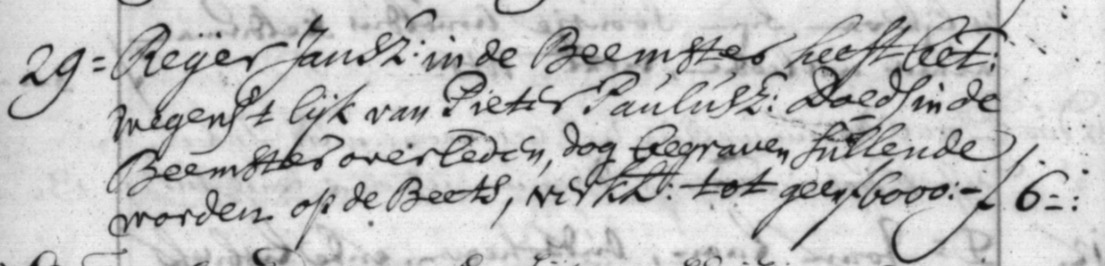 29= Reijer Jansz: in de Beemster heeft bet:
wegens t lijk van Pieter Paulusz: Doets in de
Beemster overleden, dog begraven sullende
worden op de Beets, verkl: tot geen f 6000:- f 6=: